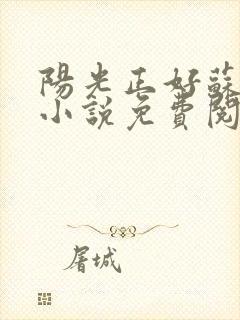 陽光正好蘇
小說免費閱
屠城